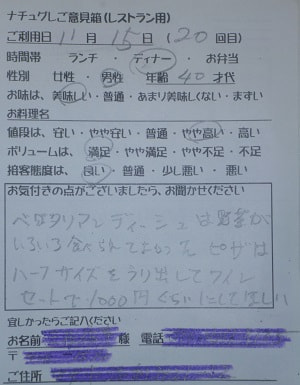 ナチュグしご意見箱(レストラン用)
ご利用日 11 月 15 日 ( 20 回目)
時間帯 ランチ ・ ディナー ・ お弁当
性別 女性 ・ 男性 年齢 40 才代
お味は、美味しい ・ 普通 ・ あまり美味しくない ・ まずい
お料理名
値段は、安い ・ やや安い ・ 普通 ・ やや高い ・ 高い
ボリュームは、満足 ・ やや満足 ・ やや不足 ・ 不足
接客態度は、良い ・ 普通 ・ 少し悪い ・ 悪い
お気付きの点がございましたら、お聞かせください
ベジタリアンディーシュは野菜が
いろいろ食べられてよかった ピザは
ハーフサイズをうり出してワイン
セットで1000円くらいにしてほしい
宜しかったらご記入ください
お名前 様 電話
〒
ご住所